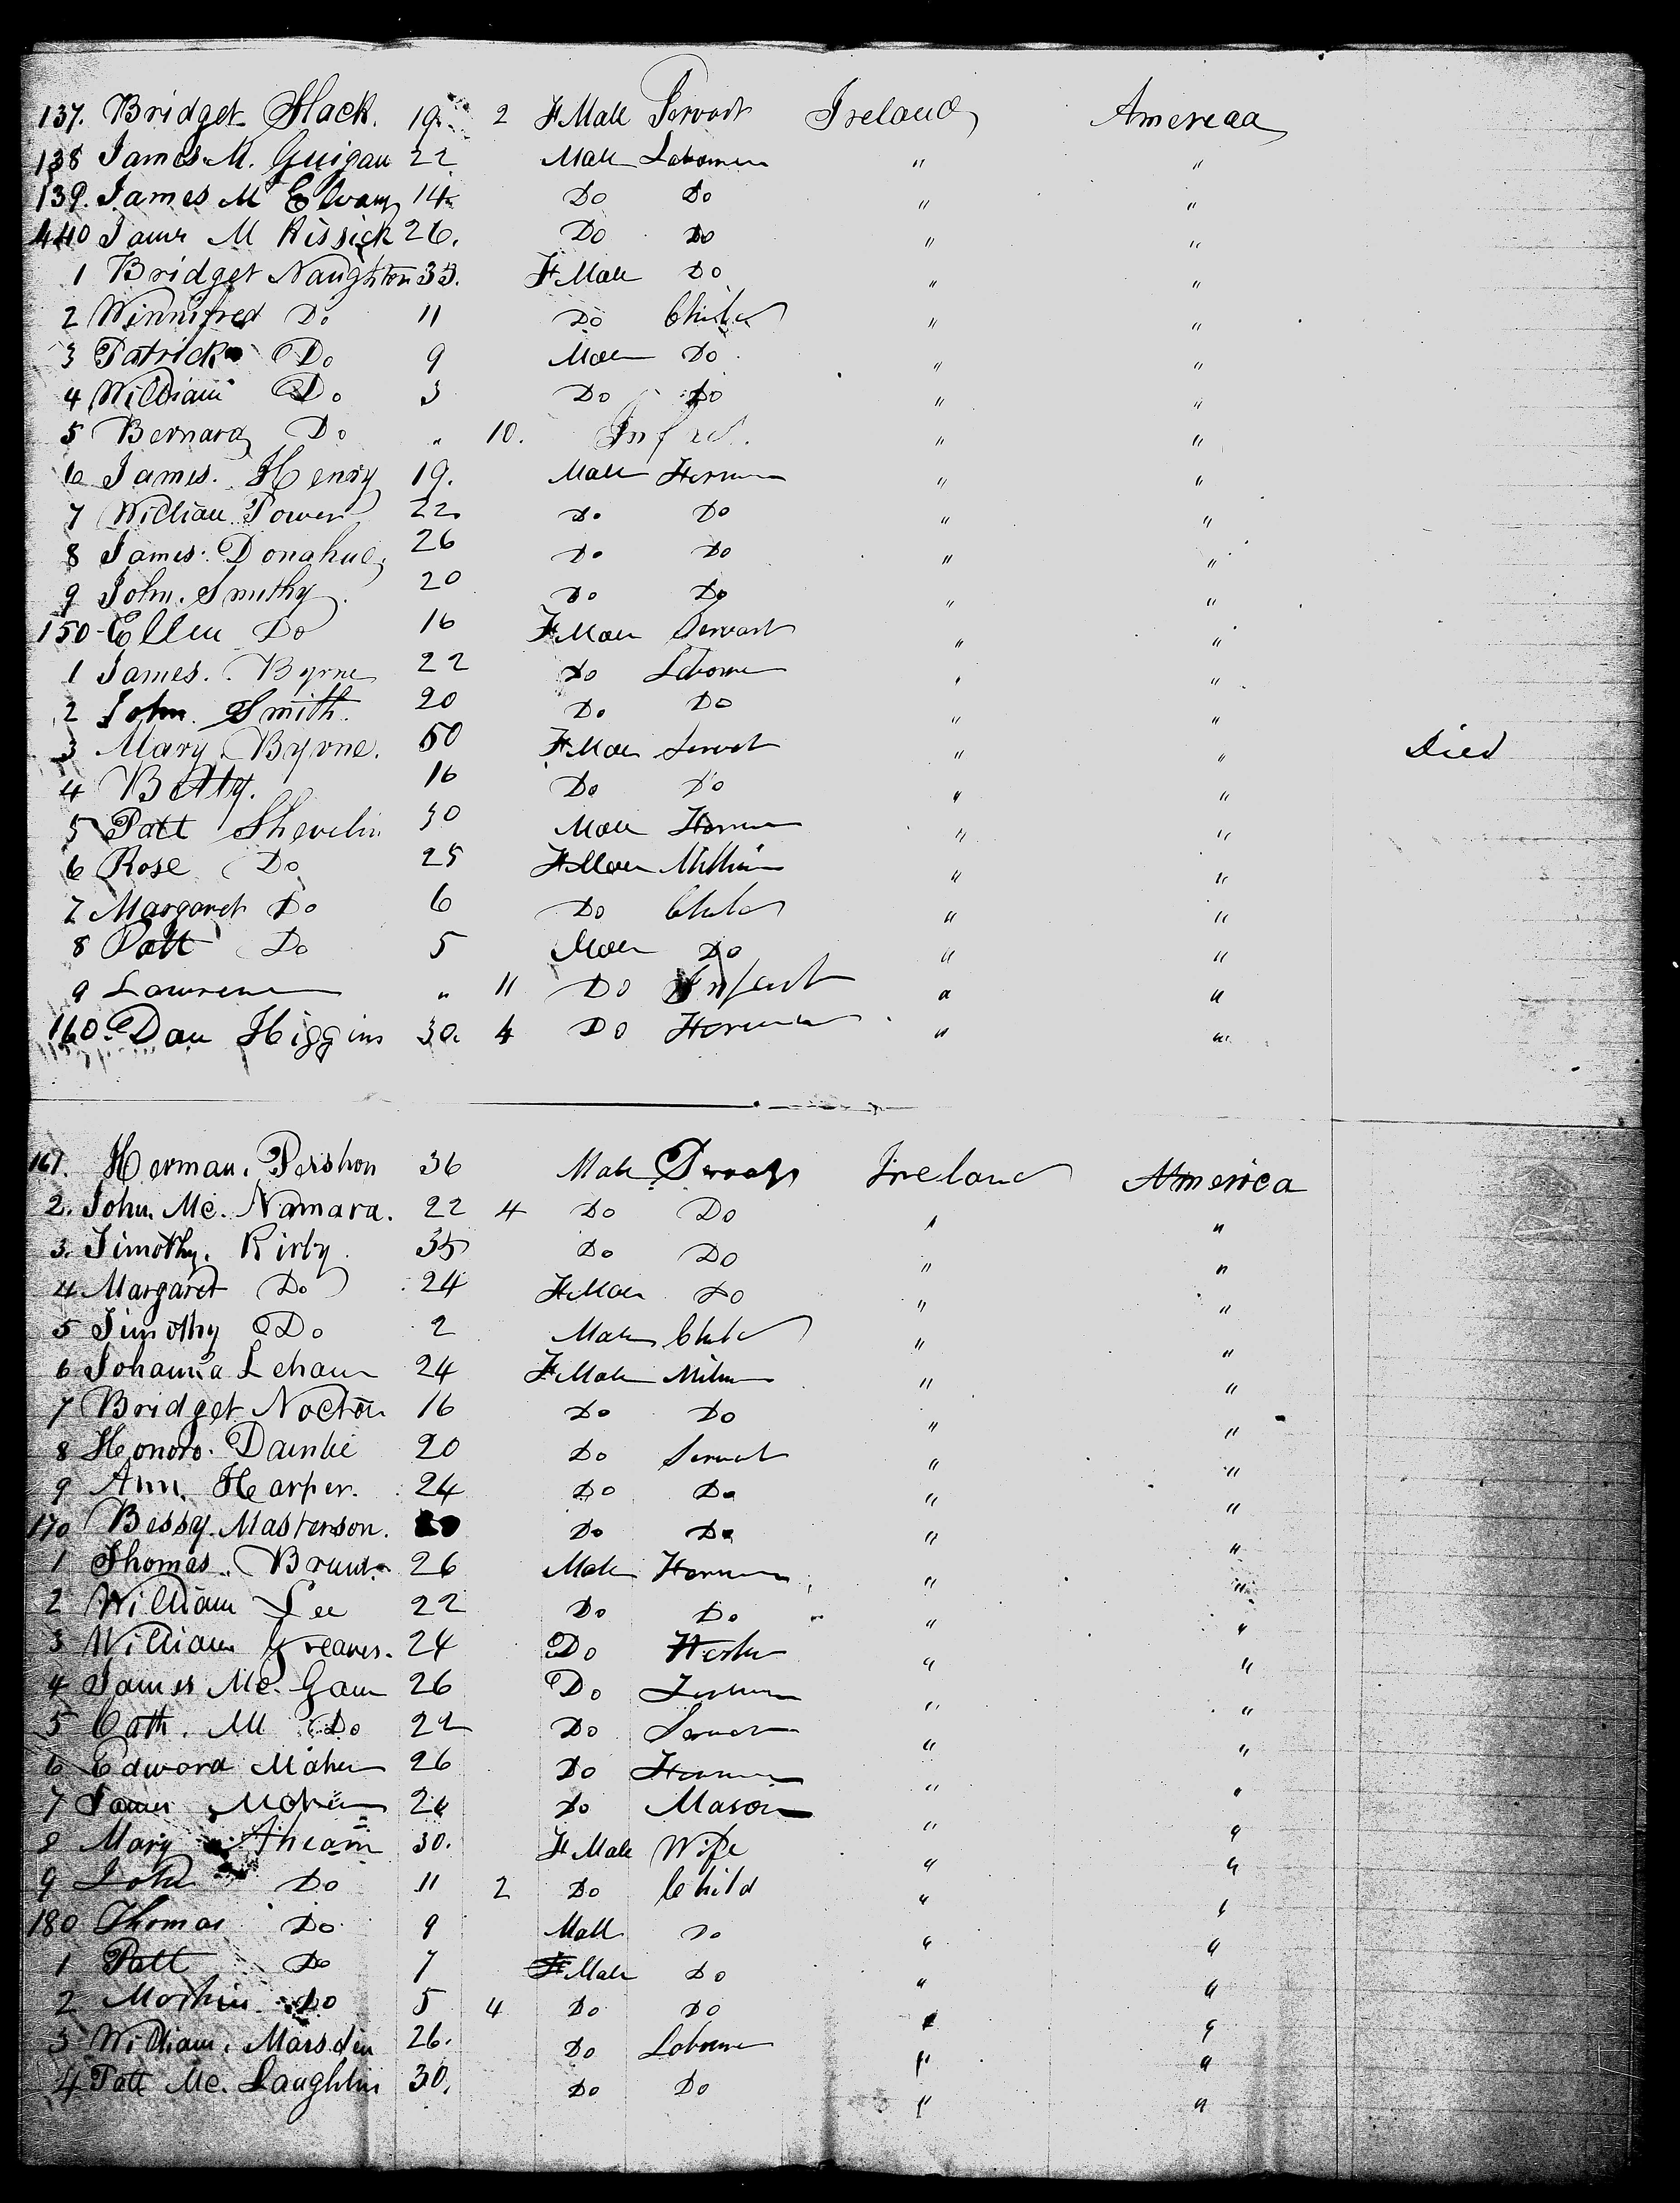 137. Bridget Slack. 19. 2 F Male Servant Ireland America
138 James M. Guigan 22 Male Labourer " "
139. James Mc Elvany 14 Do Do " "
140 James M Kissick 26. Do Do " "
1 Bridget Naughton 33. F Male Do " "
2 Winnifred Do 11 Do Child " "
3 Patrick Do 9 Male Do " "
4 William Do 3 Do Do " "
5 Bernard Do " 10. Infant. " "
6 James. Henry 19. Male Farmer " "
7 William Power 22. Do Do " "
8 James. Donahue. 26 Do Do " "
9 John. Smithy. 20 Do Do " "
150 Ellen Do 16 F Male Servant " "
1 James. Byrne 22 Do Labourer " "
2 John. Smith. 20 Do Do " "
3 Mary Byrne. 50 F Male Servant " " Died
4 Betty. 16 Do Do " "
5 Patt Shevelin 30 Male Farmer " "
6 Rose Do 25 F Male " "
7 Margaret Do 6 Do Child " "
8 Patt Do 5 Male Do " "
9 Lawrence " 11 Do Infant " "
160. Dan Higgins 30. 4 Do Farmer " "
161. Herman. Pershon 36 Male Ireland America
2. John. Mc. Namara. 22 4 Do Do " "
3. Timothy. Kirby 35 Do Do " "
4 Margaret Do 24 F Male Do " "
5 Timothy Do 2 Male Child " "
6 Johanna Lehane 24 F Male " "
7 Bridget Nocton 16 Do Do " "
8 Honoro. 20 Do Servant " "
9 Ann. Harper. 24 Do Do " "
170 Bessy. Masterson. Do Do " "
1 Thomas. 26 Male Farmer " "
2 William Lee 22 Do Do " "
3 William Greaves. 24 Do " "
4 James Mc. Gann 26 Do " "
5 Cath. M Do 22 Do Servant " "
6 Edward Maher 26 Do Farmer " "
7 James Do Mason " "
8 Mary Ahearn 30. F Male Wife " "
9 John Do 11 2 Do Child " "
180 Thomas Do 9 Male Do " "
1 Patt Do 7 F Male Do " "
2 Do 5 4 Do Do " "
3 William. Marsden 26. Do Labourer " "
4 Patt Mc. Laughlin 30. Do Do " "